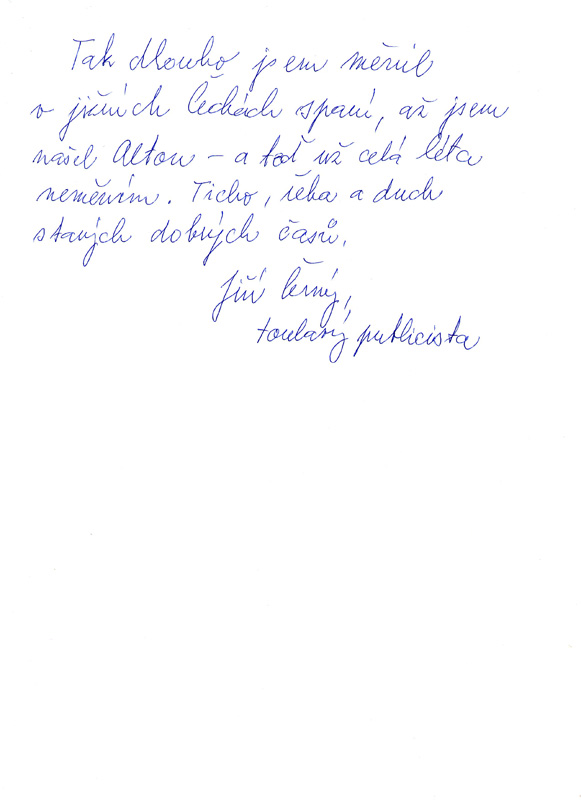 Tak dlouho jsem měnil
v jižních Čechách spaní, až jsem
našel Alton – a teď už celá léta
neměním. Ticho, řeka a duch
starých dobrých časů.
Jiří Černý,
toulavý publicista